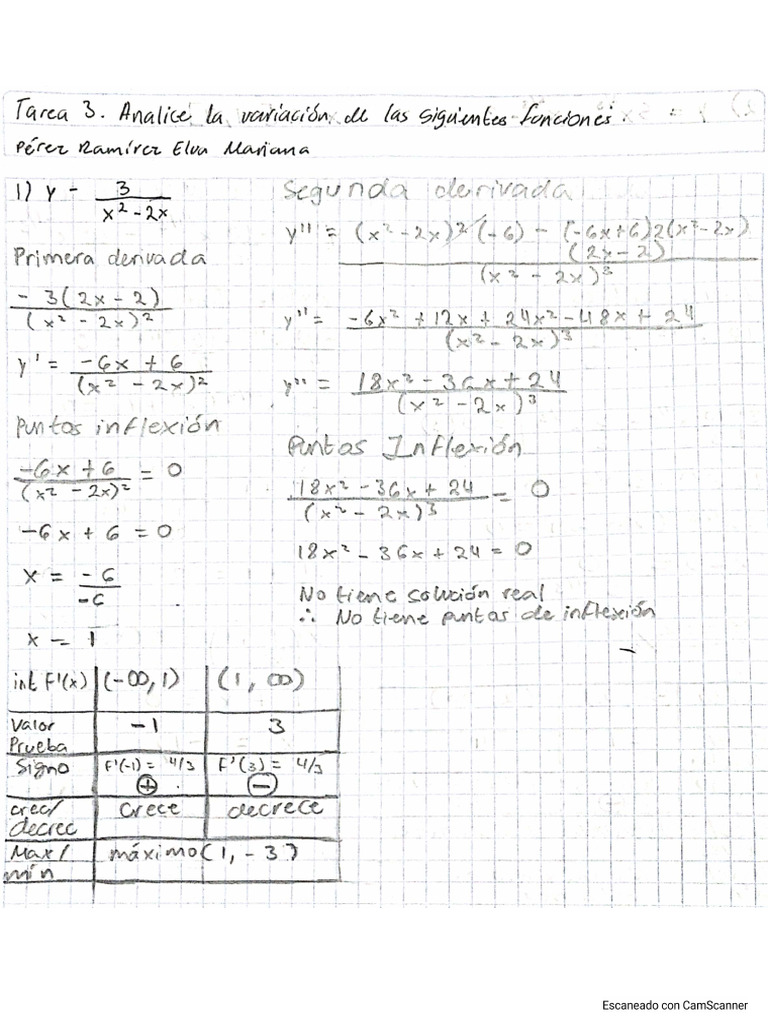 Tarea 3. Analice la variación de las siguientes funciones.
Pérez Ramírez Elva Mariana
1) y = 3 / (x² - 2x)
Primera derivada
- 3(2x - 2) / (x² - 2x)²
y' = -6x + 6 / (x² - 2x)²
Puntos inflexión
-6x + 6 / (x² - 2x)² = 0
-6x + 6 = 0
x = -6 / -6
x = 1
int F'(x) | (-∞, 1) | (1, ∞)
Valor Prueba | -1 | 3
Signo | F'(-1) = 4/3 (+) | F'(3) = 4/3 (-)
crec/ decrec | crece | decrece
Max/ mín | máximo (1, -3)
Segunda derivada
y'' = (x² - 2x)² (-6) - (-6x+6)2(x²-2x)
(2x - 2)
(x² - 2x)³
y'' = -6x² + 12x + 24x² - 48x + 24 / (x² - 2x)³
y'' = 18x² - 36x + 24 / (x² - 2x)³
Puntos Inflexión
18x² - 36x + 24 / (x² - 2x)³ = 0
18x² - 36x + 24 = 0
No tiene solución real
∴ No tiene puntos de inflexión
Escaneado con CamScanner